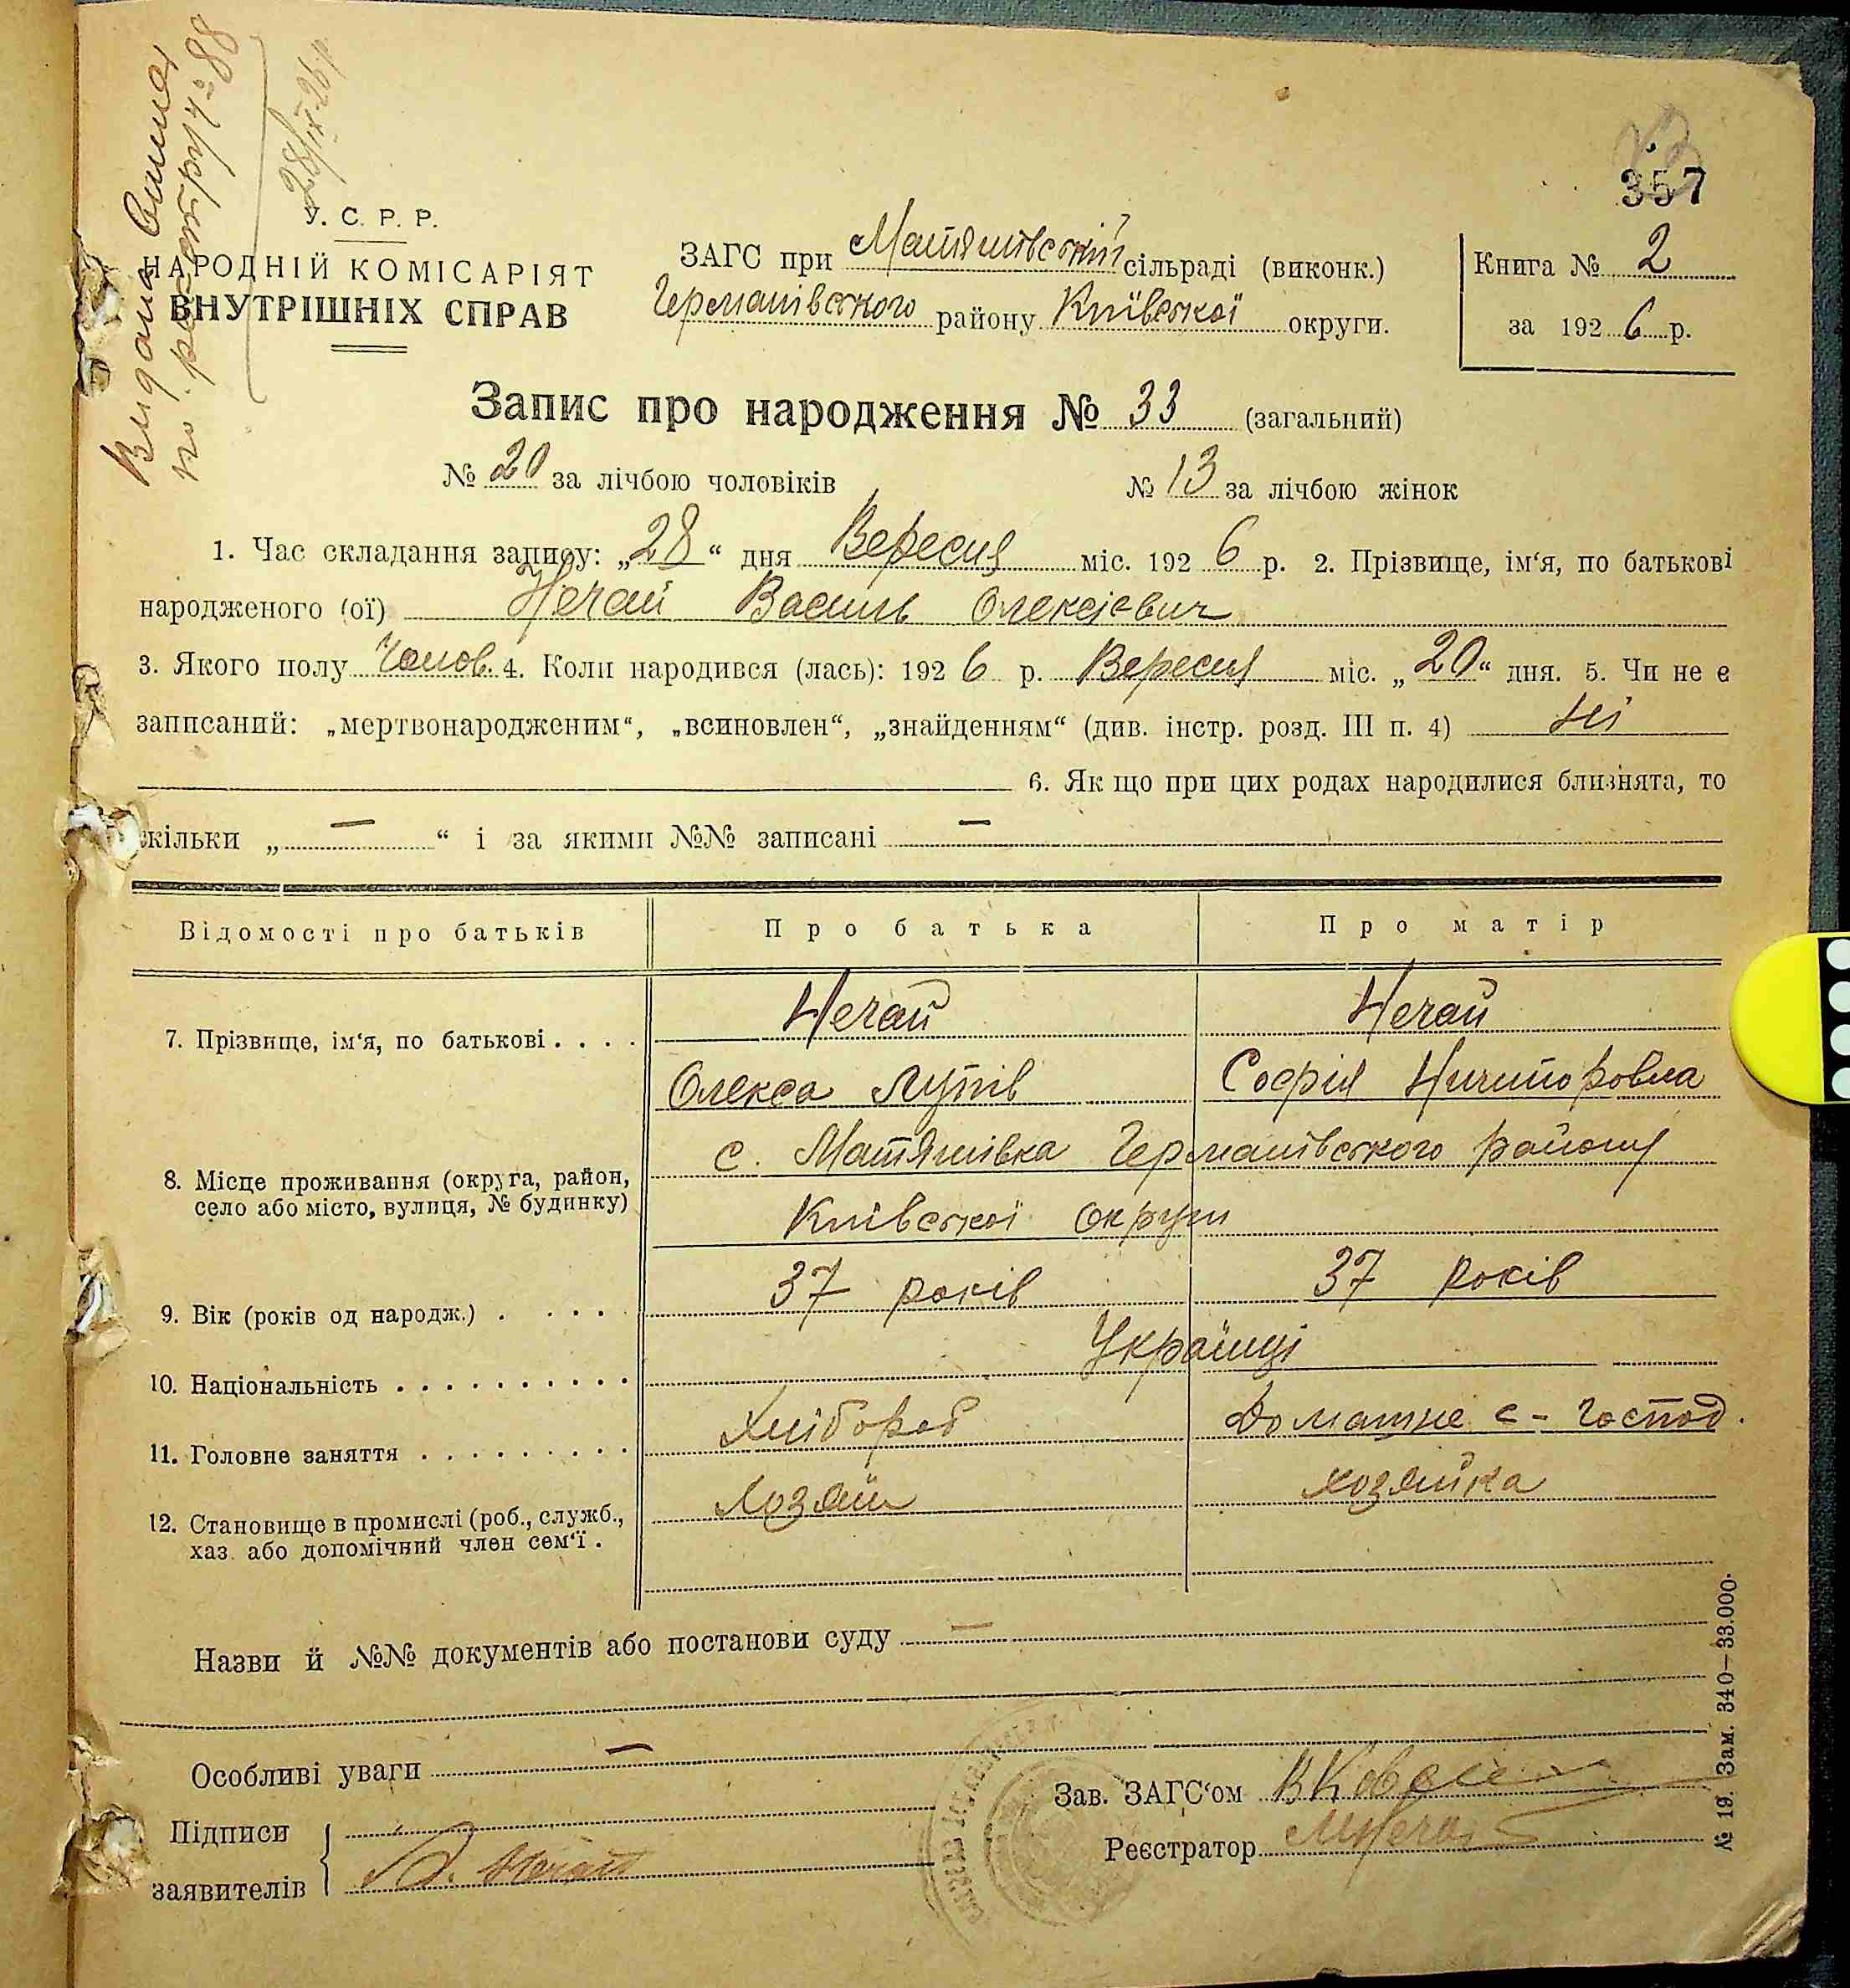 Видана виписка
по реєстру № 88
28/IX-26 р
357
У. С. Р. Р.
НАРОДНІЙ КОМІСАРІЯТ
ВНУТРІШНІХ СПРАВ
ЗАГС при Матяшівській сільраді (виконк.)
Германівського району Київської округи.
Книга № 2
за 1926 р.
Запис про народження № 33 (загальний)
№ 20 за лічбою чоловіків № 13 за лічбою жінок
1. Час складання запису: „28“ дня Вересня міс. 1926 р. 2. Прізвище, ім‘я, по батькові
народженого (ої) Нечай Василь Олексієвич
3. Якого полу Чолов. 4. Коли народився (лась): 1926 р. Вересня міс. „20“ дня. 5. Чи не є
записаний: „мертвонародженим“, „всиновлен“, „знайденням“ (див. інстр. розд. III п. 4) Ні
6. Як що при цих родах народилися близнята, то
скільки „—“ і за якими №№ записані —
Відомості про батьків Про батька Про матір
7. Прізвище, ім‘я, по батькові . . . . Нечай Нечай
Олекса Лупів Софія Ничипоровна
8. Місце проживання (округа, район, село або місто, вулиця, № будинку) с. Матяшівка Германівського району
Київської округи
9. Вік (років од народж.) . . . . 37 років 37 років
10. Національність . . . . . . . . . . Українці
11. Головне заняття . . . . . . . . . Хлібороб Домашнє с-господ.
12. Становище в промислі (роб., служб., хаз. або допомічний член сем‘ї . Хозяїн хозяйка
Назви й №№ документів або постанови суду —
Особливі уваги —
Зав. ЗАГС‘ом
Підписи
Реєстратор
заявителів Нечай
№ 19. Зам. 340—33.000.